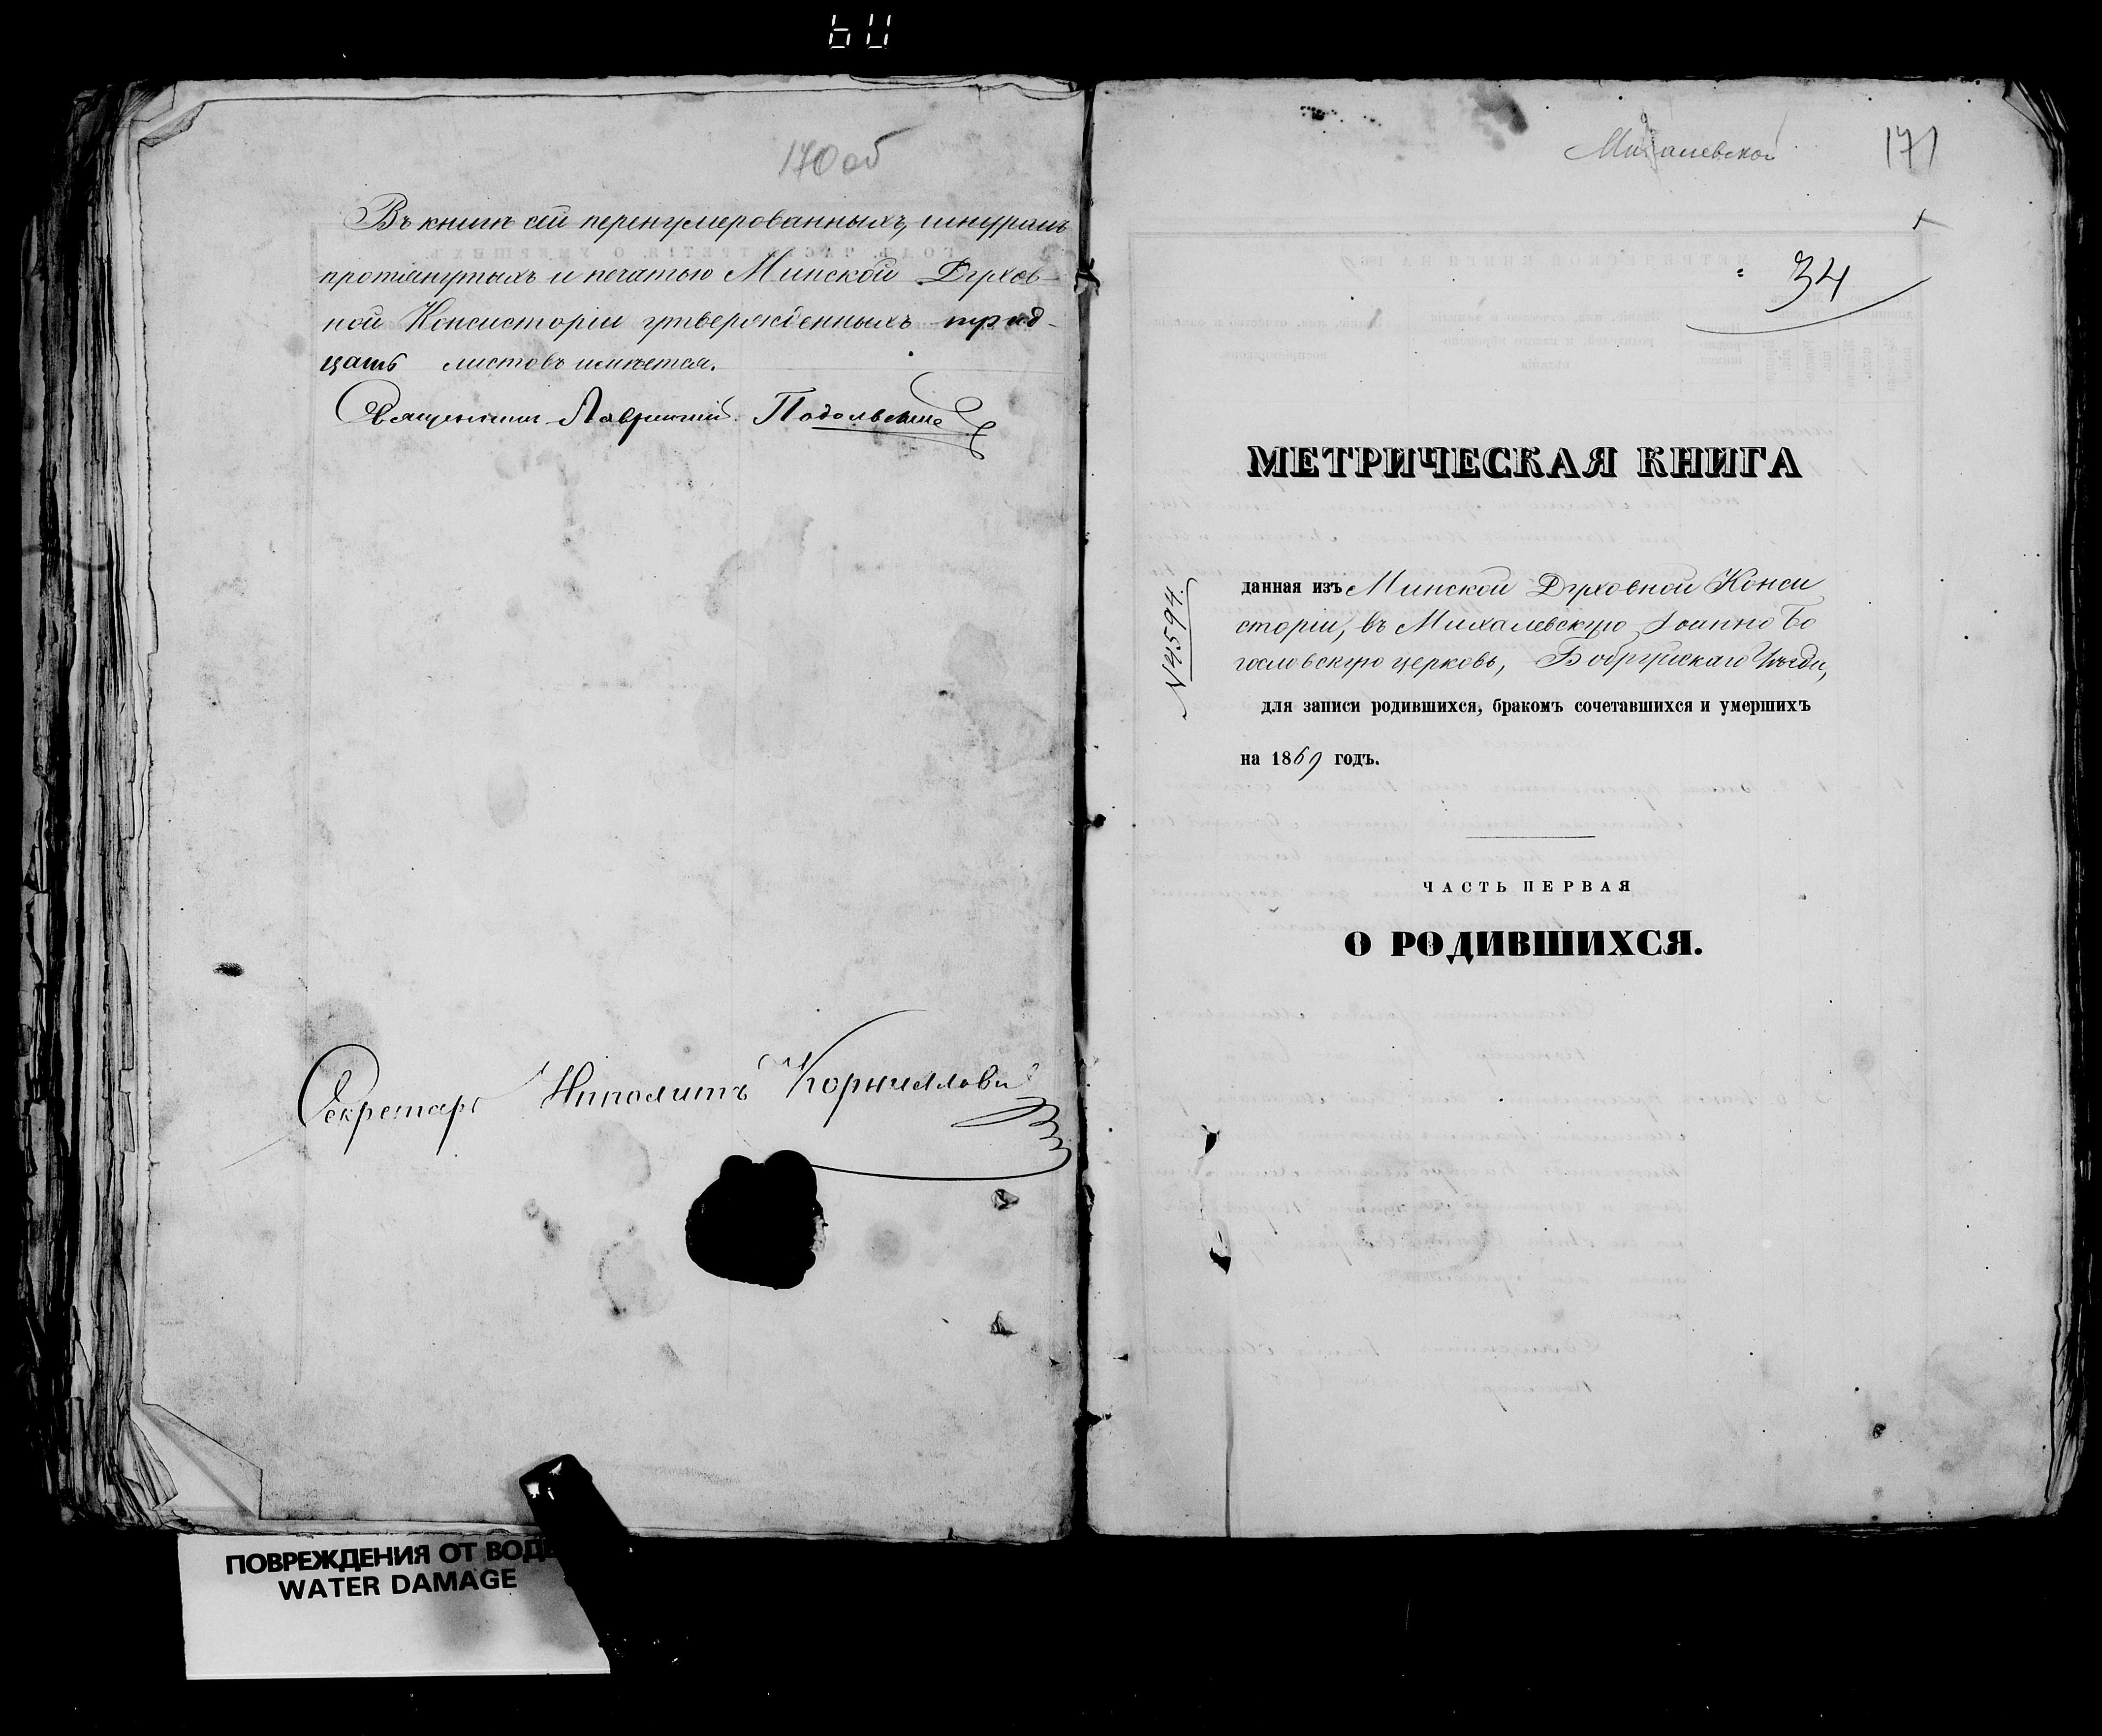 170об
Въ книгѣ сей перенумерованныхъ, шнуромъ
протянутыхъ и печатью Минской Духов-
ной Консисторіи утвержденныхъ трид-
цать листовъ имѣется.
Священникъ Лаврентій Подольскій
Секретарь Ипполитъ
ПОВРЕЖДЕНИЯ ОТ ВОД
WATER DAMAGE
Михалевской
171
34
МЕТРИЧЕСКАЯ КНИГА
№ 4594.
данная изъ Минской Духовной Конси
сторіи, въ Михалевскую Іоанно Бо
гословскую церковь, Бобруйскаго Уѣзда,
для записи родившихся, бракомъ сочетавшихся и умершихъ
на 1869 годъ.
ЧАСТЬ ПЕРВАЯ
О РОДИВШИХСЯ.